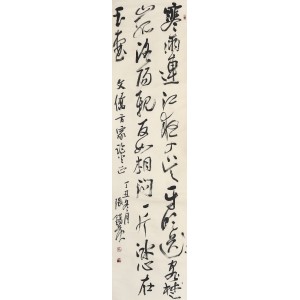 寒雨連江夜入吳平明送客楚
山孤洛陽親友如相問一片冰心在
玉壺
方家
正
丁丑
月
張